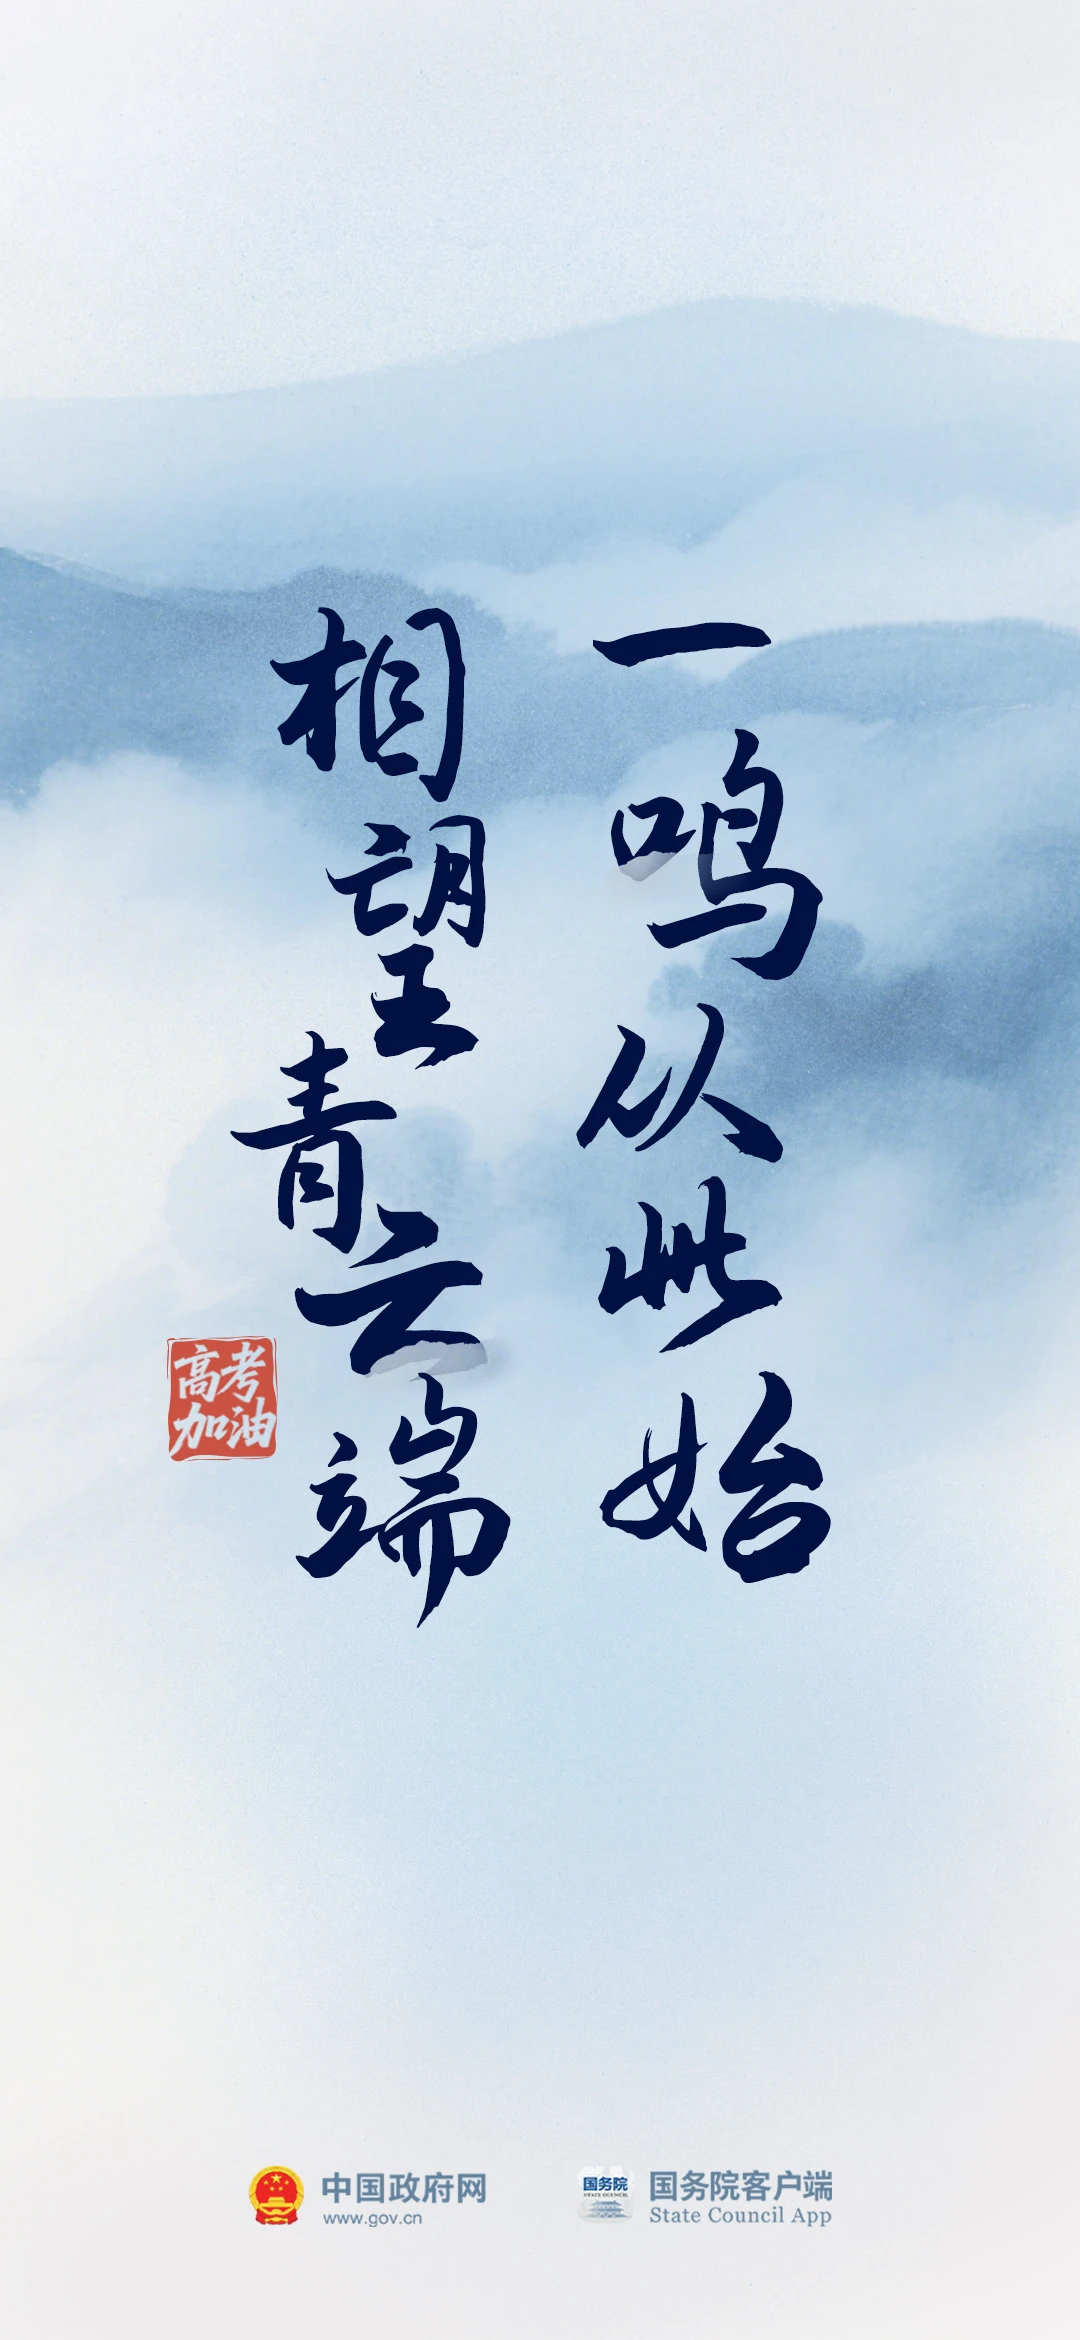 一鸣从此始
相望青云端
高考
加油
中国政府网
www.gov.cn
国务院
STATE COUNCIL
国务院客户端
State Council App